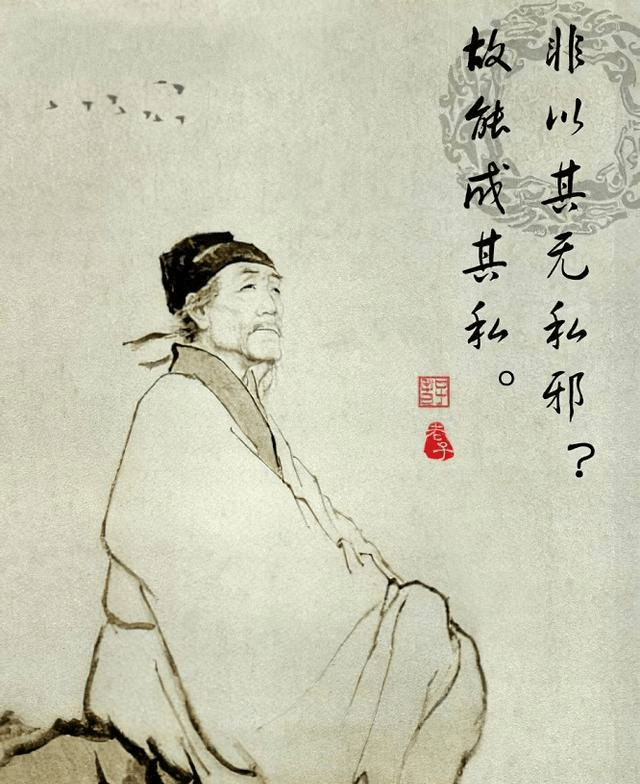 非以其无私邪？
故能成其私。
老子